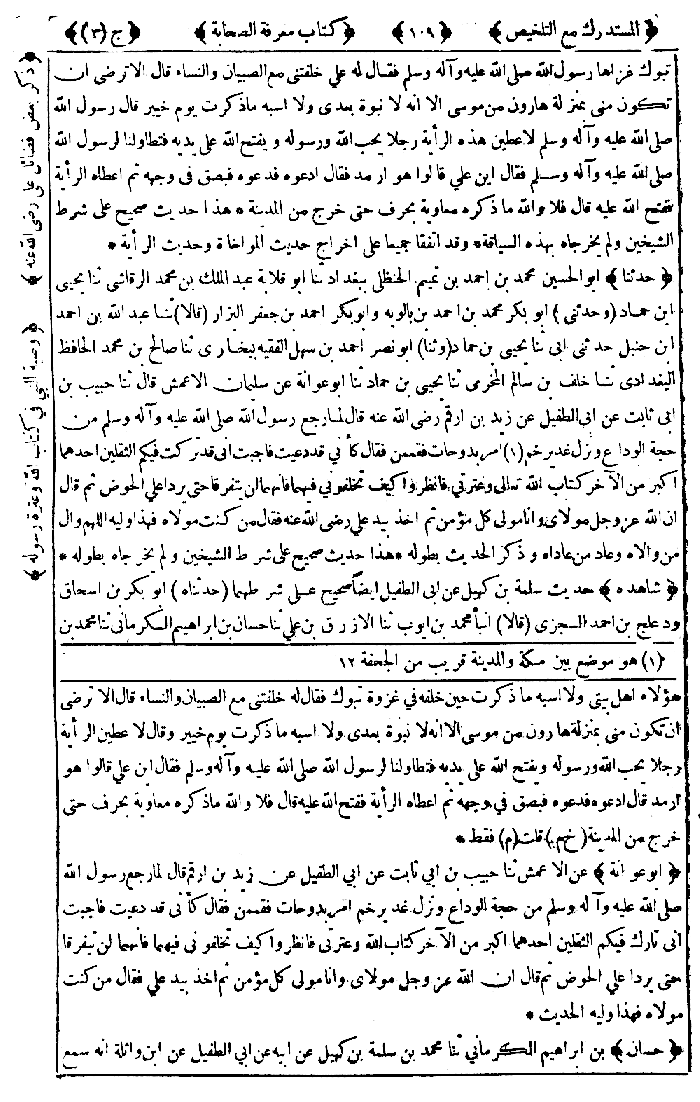 ﴿المستدرك مع التلخيص﴾ ﴿١٠٩﴾ ﴿كتاب معرفة الصحابة﴾ ﴿ج (٣)﴾
تبوك غزاها رسول الله صلى الله عليه وآله وسلم فقال له علي خلفتنى مع الصبيان والنساء قال الا ترضى ان
تكون منى بمنزلة هارون من موسى الا انه لا نبوة بعدى ولا اسبه ما ذكرت يوم خيبر قال رسول الله
صلى الله عليه وآله وسلم لاعطين هذه الرأية رجلا يحب الله ورسوله و يفتح الله على يديه فتطاولنا لرسول الله
صلى الله عليه وآله وسلم فقال اين علي قالوا هو ارمد فقال ادعوه فدعوه فبصق فى وجهه ثم اعطاه الرأية
ففتح الله عليه قال فلا والله ما ذكره معاوية بحرف حتى خرج من المدينة * هذا حديث صحيح على شرط
الشيخين ولم يخرجاه بهذه السياقة* وقد اتفقا جميعا على اخراج حديث المواخاة وحديث الرأية *
﴿حدثنا﴾ ابو الحسين محمد بن احمد بن تميم الحنظلى ببغداد ثنا ابو قلابة عبد الملك بن محمد الرقاشى ثنا يحيى
ابن حماد (وحدثنى) ابو بكر محمد بن احمد بن بالويه وابو بكر احمد بن جعفر البزار (قالا) ثنا عبد الله بن احمد
ابن حنبل حدثنى ابى ثنا يحيى بن حماد (وثنا) ابو نصر احمد بن سهل الفقيه ببخارى ثنا صالح بن محمد الحافظ
البغدادى ثنا خلف بن سالم المخرمى ثنا يحيى بن حماد ثنا ابو عوانة عن سليمان الاعمش قال ثنا حبيب بن
ابى ثابت عن ابى الطفيل عن زيد بن ارقم رضى الله عنه قال لما رجع رسول الله صلى الله عليه وآله وسلم من
حجة الوداع ونزل غدير خم (١) امر بدوحات فقممن فقال كأنى قد دعيت فاجبت انى قد تركت فيكم الثقلين احدهما
اكبر من الآخر كتاب الله تعالى وعترتي فانظروا كيف تخلفوني فيهما فانهما لن يتفرقا حتى يردا علي الحوض ثم قال
ان الله عز وجل مولاى وانا مولى كل مؤمن ثم اخذ بيد علي رضى الله عنه فقال من كنت مولاه فهذا وليه اللهم وال
من والاه وعاد من عاداه و ذكر الحديث بطوله *هذا حديث صحيح على شرط الشيخين ولم يخرجاه بطوله *
﴿شاهده﴾ حديث سلمة بن كهيل عن ابى الطفيل ايضاً صحيح على شرطهما (حدثناه) ابو بكر بن اسحاق
ودعلج بن احمد السجزى (قالا) انبأ محمد بن ايوب ثنا الازرق بن علي ثنا حسان بن ابراهيم الكرمانى ثنا محمد بن
(١) هو موضع بين مكة والمدينة قريب من الجحفة ١٢
هؤلاء اهل بيتى ولا اسبه ما ذكرت حين خلفه في غزوة تبوك فقال له خلفتنى مع الصبيان والنساء قال الا ترضى
ان تكون منى بمنزلة هارون من موسى الا انه لا نبوة بعدى ولا اسبه ما ذكرت يوم خيبر وقال لاعطين الرأية
رجلا يحب الله ورسوله ويفتح الله على يديه فتطاولنا لرسول الله صلى الله عليه وآله وسلم فقال اين علي قالوا هو
ارمد قال ادعوه فدعوه فبصق في وجهه ثم اعطاه الرأية ففتح الله عليه قال فلا والله ما ذكره معاوية بحرف حتى
خرج من المدينة (خ م) قلت (م) فقط *
﴿ابو عوانة﴾ عن الاعمش ثنا حبيب بن ابي ثابت عن ابي الطفيل عن زيد بن ارقم قال لما رجع رسول الله
صلى الله عليه وآله وسلم من حجة الوداع ونزل غدير خم امر بدوحات فقممن فقال كأنى قد دعيت فاجبت
انى تارك فيكم الثقلين احدهما اكبر من الآخر كتاب الله وعترتى فانظروا كيف تخلفونى فيهما فانهما لن يتفرقا
حتى يردا علي الحوض ثم قال ان الله عز وجل مولاى وانا مولى كل مؤمن ثم اخذ بيد علي فقال من كنت
مولاه فهذا وليه الحديث *
﴿حسان﴾ بن ابراهيم الكرماني ثنا محمد بن سلمة بن كهيل عن ابيه عن ابي الطفيل عن ابن واثلة انه سمع
﴿ذكر بعض فضائل علي رضى الله عنه﴾
﴿وصية النبي في كتاب الله وعترة رسوله﴾